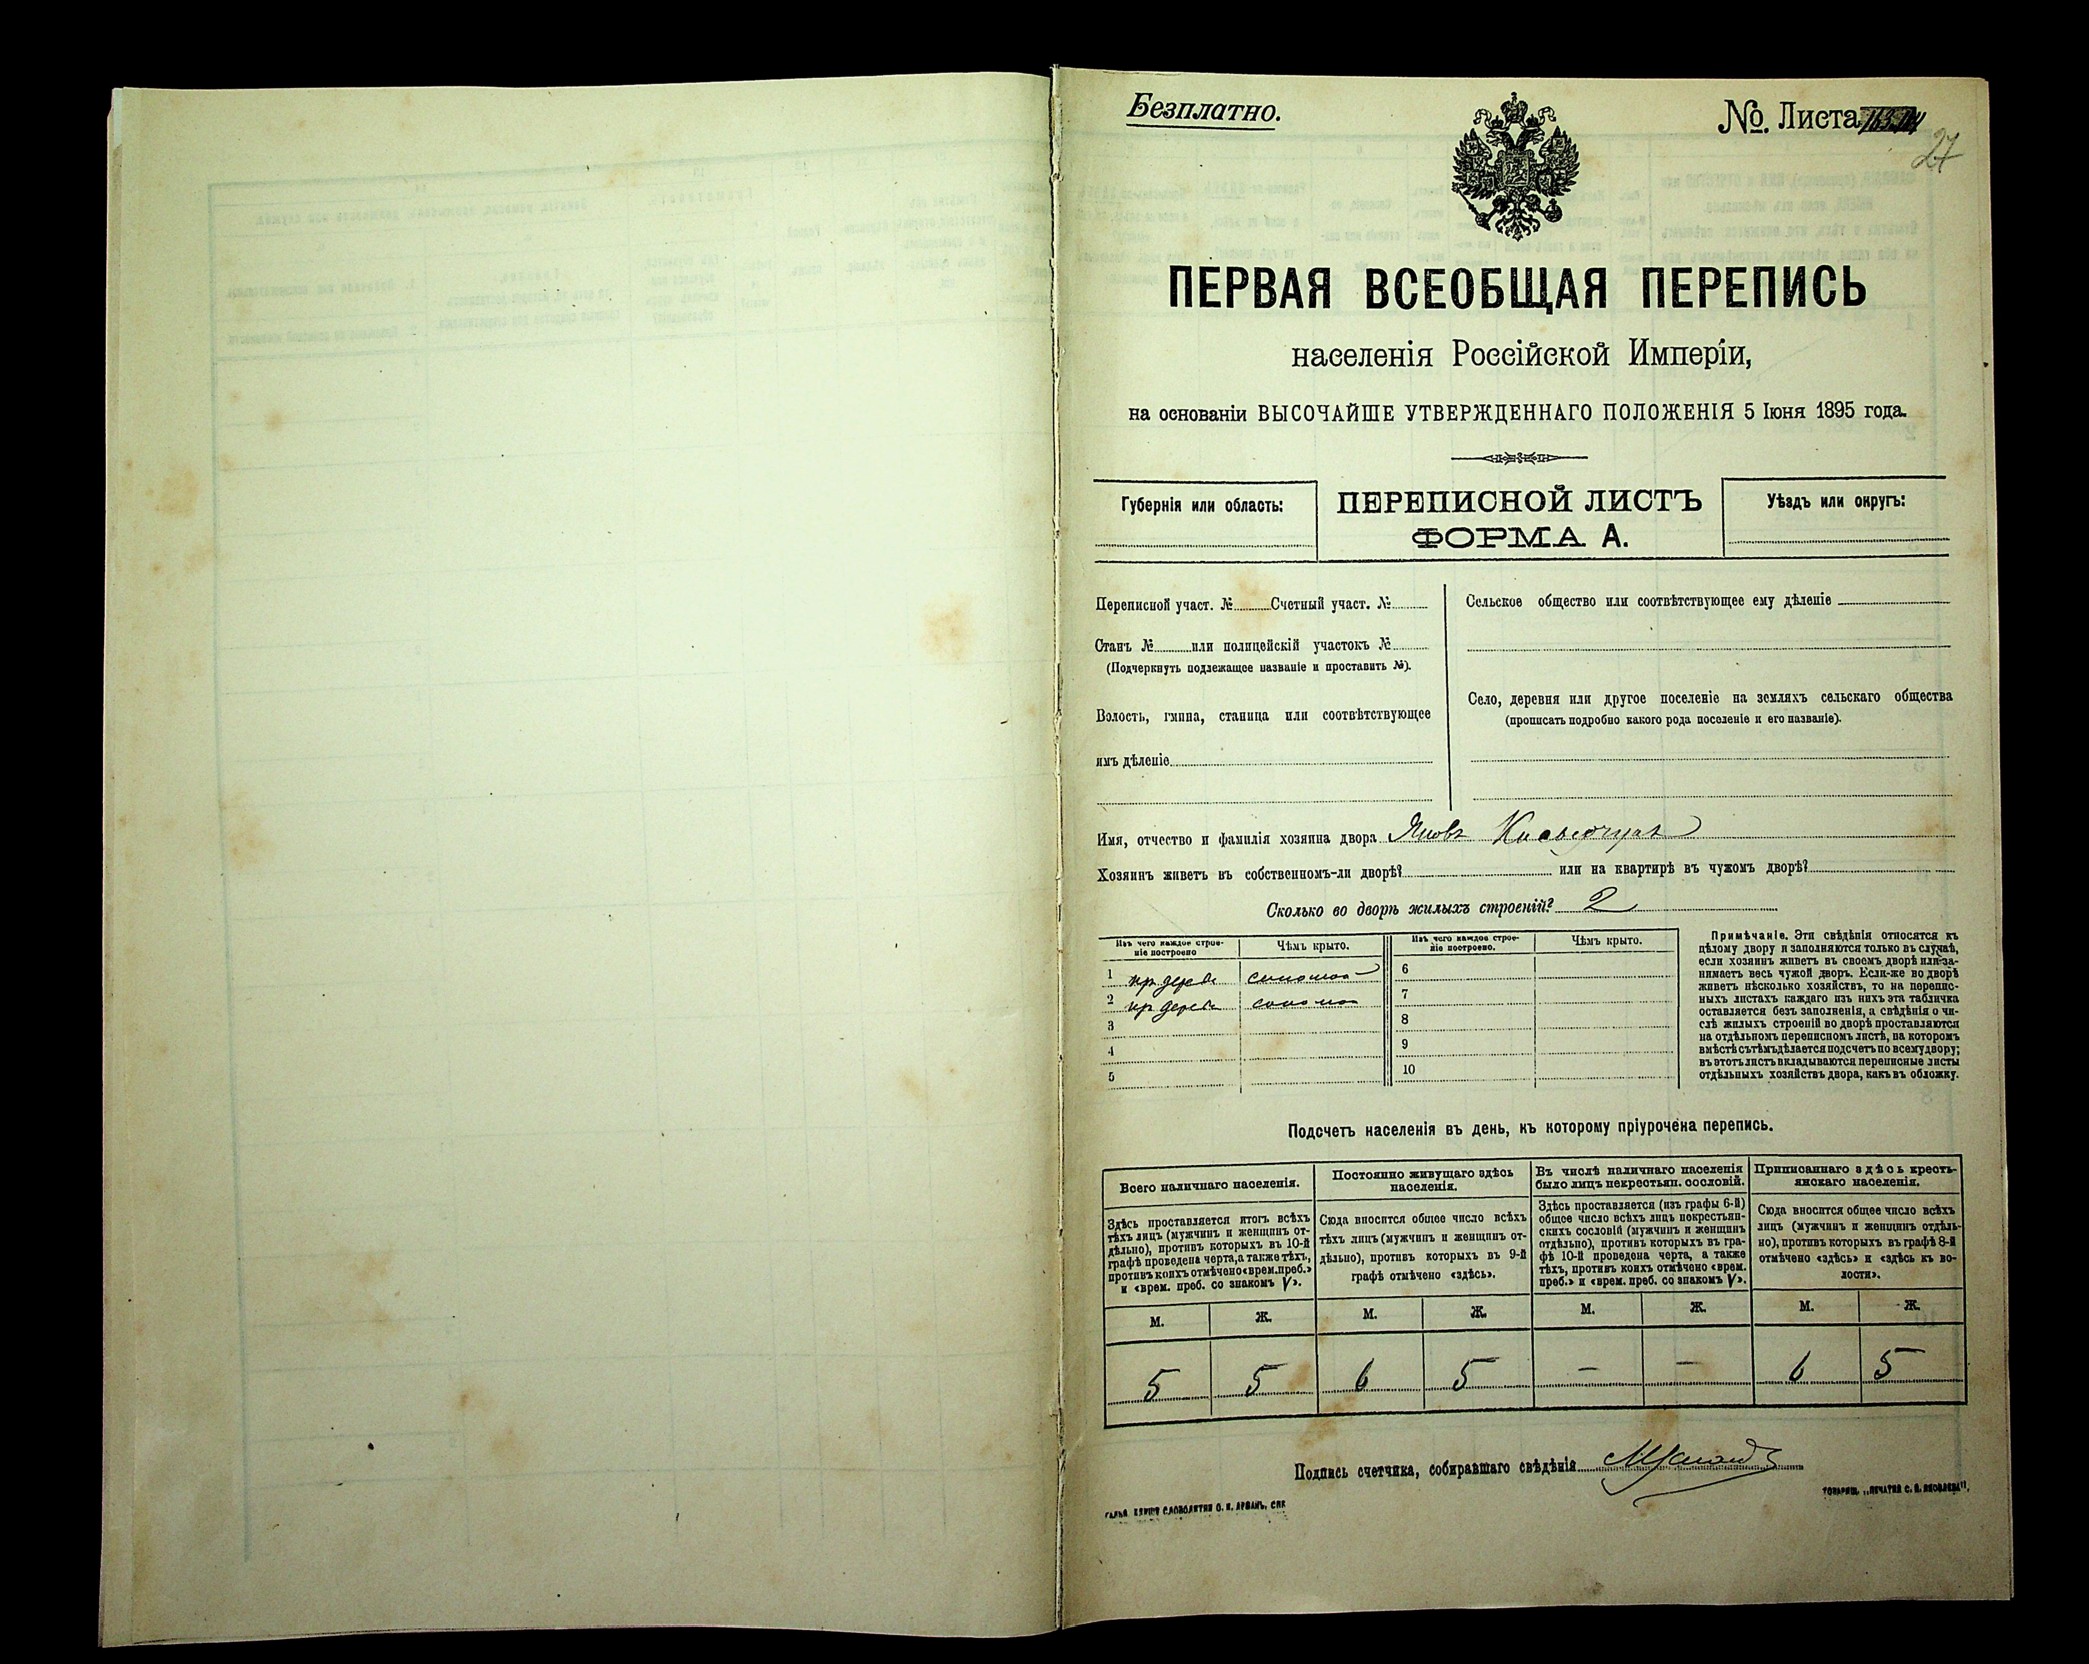 Безплатно.
№. Листа
27
ПЕРВАЯ ВСЕОБЩАЯ ПЕРЕПИСЬ
населенія Россійской Имперіи,
на основаніи ВЫСОЧАЙШЕ УТВЕРЖДЕННАГО ПОЛОЖЕНІЯ 5 Іюня 1895 года.
Губернія или область:
ПЕРЕПИСНОЙ ЛИСТЪ
ФОРМА А.
Уѣздъ или округъ:
Переписной участ. № Счетный участ. №
Станъ № или полицейскій участокъ №
(Подчеркнуть подлежащее названіе и проставить №).
Волость, гмина, станица или соотвѣтствующее
имъ дѣленіе
Сельское общество или соотвѣтствующее ему дѣленіе
Село, деревня или другое поселеніе на земляхъ сельскаго общества
(прописать подробно какого рода поселеніе и его названіе).
Имя, отчество и фамилія хозяина двора Яковъ
Хозяинъ живетъ въ собственномъ-ли дворѣ? или на квартирѣ въ чужомъ дворѣ?
Сколько во дворѣ жилыхъ строеній? 2
Изъ чего каждое строе-
ніе построено
Чѣмъ крыто.
1
2
3
4
5
Изъ чего каждое строе-
ніе построено.
Чѣмъ крыто.
6
7
8
9
10
Примѣчаніе. Эти свѣдѣнія относятся къ
цѣлому двору и заполняются только въ случаѣ,
если хозяинъ живетъ въ своемъ дворѣ или за-
нимаетъ весь чужой дворъ. Если-же во дворѣ
живетъ нѣсколько хозяйствъ, то на перепис-
ныхъ листахъ каждаго изъ нихъ эта табличка
оставляется безъ заполненія, а свѣдѣнія о чи-
слѣ жилыхъ строеній во дворѣ проставляются
на отдѣльномъ переписномъ листѣ, на которомъ
вмѣстѣ съ тѣмъ дѣлается подсчетъ по всему двору;
въ этотъ листъ вкладываются переписные листы
отдѣльныхъ хозяйствъ двора, какъ въ обложку.
Подсчетъ населенія въ день, къ которому пріурочена перепись.
Всего наличнаго населенія.
Здѣсь проставляется итогъ всѣхъ
тѣхъ лицъ (мужчинъ и женщинъ от-
дѣльно), противъ которыхъ въ 10-й
графѣ проведена черта, а также тѣхъ,
противъ коихъ отмѣчено «врем. преб.»
и «врем. преб. со знакомъ V».
М. Ж.
5 5
Постоянно живущаго здѣсь
населенія.
Сюда вносится общее число всѣхъ
тѣхъ лицъ (мужчинъ и женщинъ от-
дѣльно), противъ которыхъ въ 9-й
графѣ отмѣчено «здѣсь».
М. Ж.
6 5
Въ числѣ наличнаго населенія
было лицъ некрестьян. сословій.
Здѣсь проставляется (изъ графы 6-й)
общее число всѣхъ лицъ некрестьян-
скихъ сословій (мужчинъ и женщинъ
отдѣльно), противъ которыхъ въ гра-
фѣ 10-й проведена черта, а также
тѣхъ, противъ коихъ отмѣчено «врем.
преб.» и «врем. преб. со знакомъ V».
М. Ж.
— —
Приписаннаго здѣсь кресть-
янскаго населенія.
Сюда вносится общее число всѣхъ
лицъ (мужчинъ и женщинъ отдѣль-
но), противъ которыхъ въ графѣ 8-й
отмѣчено «здѣсь» и «здѣсь къ во-
лости».
М. Ж.
6 5
Подпись счетчика, собиравшаго свѣдѣнія